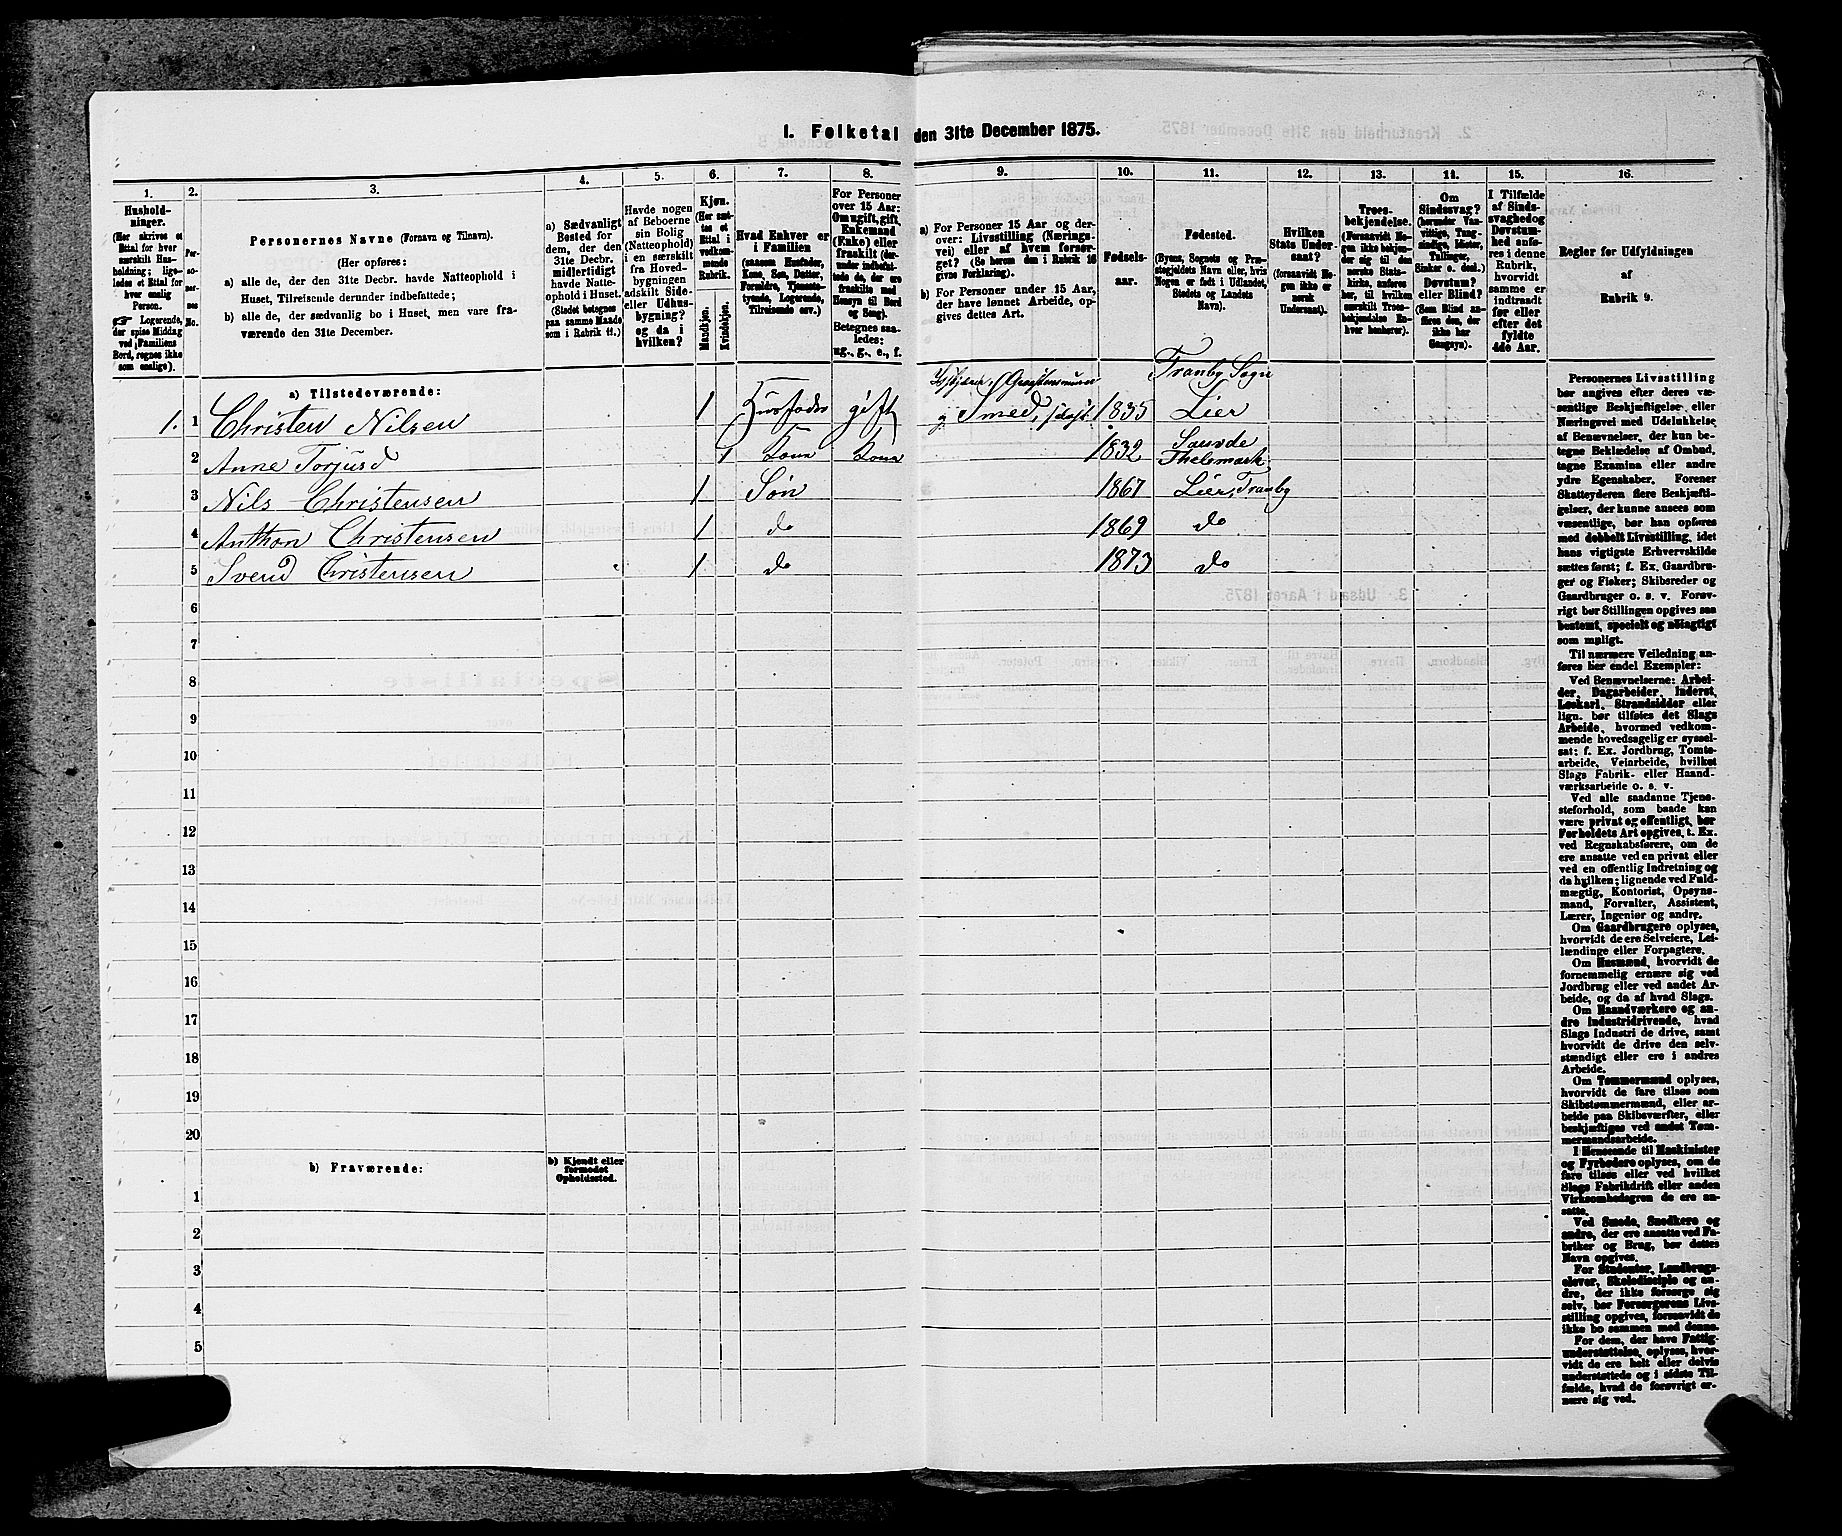 I. Folketal den 31te December 1875.
1.
2.
3.
4.
5.
6.
7.
8.
9.
10.
11.
12.
13.
14.
15.
16.
Hushold-
ninger.
(Her skrives et
Ettal for hver
særskilt Hus-
holdning; lige-
ledes et Ettal for
hver enslig
Person.
☞ Logerende,
der spise Middag
ved Familiens
Bord, regnes ikke
som enslige).
Per-
so-
ner-
nes
No.
Personernes Navne (Fornavn og Tilnavn).
(Her opføres:
a) alle de, der den 31te Decbr. havde Natteophold i
Huset, Tilreisende derunder indbefattede;
b) alle de, der sædvanlig bo i Huset, men vare fra-
værende den 31te December.
a) Sædvanligt
Bosted for
dem, der den
31te Decbr.
midlertidigt
havde Natte-
ophold i Huset.
(Stedet betegnes
paa samme Maade
som i Rubrik 11.)
Havde nogen
af Beboerne
sin Bolig
(Natteophold)
i en særskilt
fra Hoved-
bygningen
adskilt Side-
eller Udhus-
bygning?
og da i
hvilken?
Kjøn.
(Her sæt-
tes et
Ettal i
vedkom-
mende
Rubrik.
Mandkjøn.
Kvindekjøn.
Hvad Enhver er
i Familien
(saasom Husfader,
Kone, Søn, Datter,
Forældre, Tjeneste-
tyende, Logerende,
Tilreisende osv.)
For Personer
over 15 Aar:
Om ugift, gift,
Enkemand
(Enke) eller
fraskilt (der-
under indbefat-
tede de, der ere
fraskilte med
Hensyn til Bord
og Seng).
Betegnes saa-
ledes:
ug., g., e., f.
a) For Personer 15 Aar og der-
over: Livsstilling (Nærings-
vei) eller af hvem forsør-
get? (Se herom den i Rubrik 16
givne Forklaring).
b) For Personer under 15 Aar,
der have lønnet Arbeide, op-
gives dettes Art.
Fødsels-
aar.
Fødested.
(Byens, Sognets og Præ-
stegjeldets Navn eller, hvis
Nogen er født i Udlandet,
Stedets og Landets
Navn).
Hvilken
Stats Under-
saat?
(forsaavidt No-
gen ikke er
norsk
Undersaat).
Troes-
bekjendelse.
(Forsaavidt No-
gen ikke bekjen-
der sig til den
norske Stats-
kirke, anføres
her, til hvilken
særskilt Troes-
bekjendelse En-
hver henhører).
Om
Sindssvag?
(herunder Van-
vittige, Tung-
sindige, Idioter,
Tullinger,
Sinker o. desl.)
Døvstum?
eller Blind?
(Som Blind an-
føres den, der
ikke har
Gangsyn).
I Tilfælde
af Sinds-
svaghed og
Døvstum-
hed anfø-
res i denne
Rubrik,
hvorvidt
samme er
indtraadt
før eller
efter det
fyldte
4de Aar.
Regler for Udfyldningen
af
Rubrik 9.
a) Tilstedeværende:
1. 1 Christen Nilsen 1 Husfader gift Smed, 1835 Tranby Sogn Lier
2 Anne Torjusd 1 Kone Kone 1832 Saude Thelemark
3 Nils Christensen 1 Søn 1867 Lier, Tranby
4 Anthon Christensen 1 do 1869 do
5 Svend Christensen 1 do 1873 do
6
7
8
9
10
11
12
13
14
15
16
17
18
19
20
b) Fraværende:
b) Kjendt eller
formodet
Opholdssted.
1
2
3
4
5
Personernes Livsstilling
bør angives efter deres væ-
sentlige Beskjæftigelse eller
Næringsvei med Udelukkelse
af Benævnelser, der kun be-
tegne Beklædelse af Ombud,
tagne Examina eller andre
ydre Egenskaber. Forener
Skatteyderen flere Beskjæfti-
gelser, der kunne ansees som
væsentlige, bør han opføres
med dobbelt Livsstilling, idet
hans vigtigste Erhvervskilde
sættes først; f. Ex. Gaardbru-
ger og Fisker; Skibsreder og
Gaardbruger o. s. v. Forøv-
rigt bør Stillingen opgives saa
bestemt, specielt og nøiagtigt
som muligt.
Til nærmere Veiledning an-
føres her endel Exempler:
Ved Benævnelserne: Arbei-
der, Dagarbeider, Inderst,
Løskarl, Strandsidder eller
lign. bør tilføies det Slags
Arbeide, hvormed vedkom-
mende hovedsagelig er syssel-
sat; f. Ex. Jordbrug, Tomte-
arbeide, Veiarbeide, hvilket
Slags Fabrik- eller Haand-
værksarbeide o. s. v.
Ved alle saadanne Tjene-
steforhold, som baade kan
være privat og offentligt, bør
Forholdets Art opgives, t. Ex.
ved Regnskabsførere, om de
ere ansatte ved en privat eller
ved en offentlig Indretning og
da hvilken; lignende ved Fuld-
mægtig, Kontorist, Opsyns-
mand, Forvalter, Assistent,
Lærer, Ingeniør og andre.
Om Gaardbrugere oplyses,
hvorvidt de ere Selveiere, Lei-
lændinge eller Forpagtere.
Om Husmænd, hvorvidt de
fornemmelig ernære sig ved
Jordbrug eller ved andet Ar-
beide, og da af hvad Slags.
Om Haandværkere og an-
dre Industridrivende, hvad
Slags Industri de drive, samt
hvorvidt de drive den selv-
stændigt eller ere i andres
Arbeide.
Om Tømmermænd oplyses,
hvorvidt de fare tilsøs som
Skibstømmermænd, eller ar-
beide paa Skibsværfter, eller
beskjæftiges ved andet Tøm-
mermandsarbeide.
I Henseende til Maskinister
og Fyrbødere oplyses, om de
fare tilsøs eller ved hvilket
Slags Fabrikdrift eller anden
Virksomhedsgren de ere an-
satte.
Ved Smede, Snedkere og
andre, der ere ansatte ved Fa-
briker og Brug, bør dettes
Navn opgives.
For Studenter, Landbrugs-
elever, Skoledisciple og an-
dre, der ikke forsørge sig
selv, bør Forsørgerens Livs-
stilling opgives, forsaavidt de
ikke bo sammen med denne.
For dem, der have Fattig-
understøttelse, oplyses, hvor-
vidt de ere helt eller delvis
understøttede og i sidste Til-
fælde, hvad de forøvrigt er-
nære sig ved.